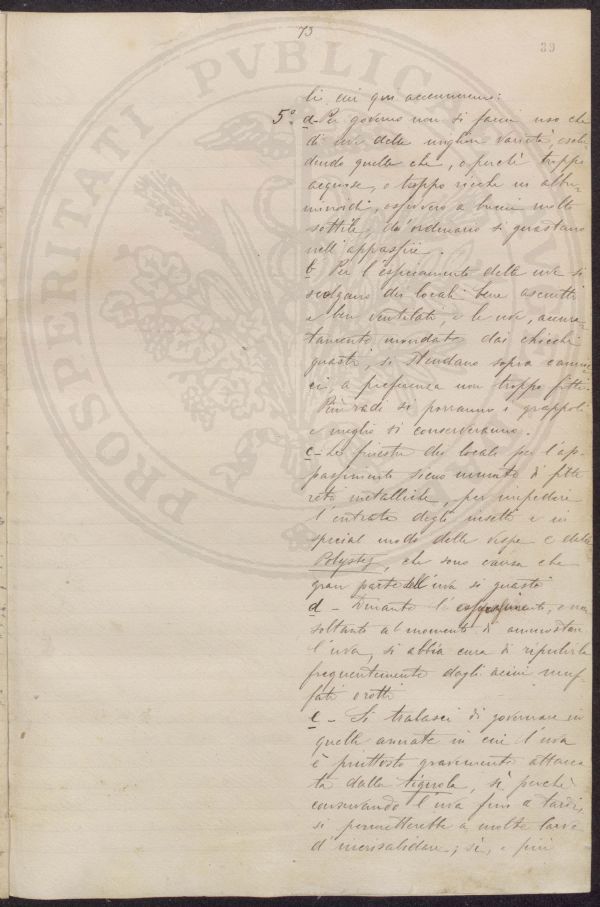 73
39
PROSPERITATI PVBLICAE
li cui qui accenneremo:
5° a - Per governo non si faccia uso che
di uve delle migliori varietà, esclu-
dendo quelle che, o perchè troppo
acquose, o troppo ricche in albu-
minoidi, ovvero a buccia molto
sottile, d'ordinario si guastano
nell'appassire.
b - Per l'essiccamento delle uve si
scelgano dei locali bene asciutti
e ben ventilati, e le uve, accura-
tamente mondate dai chicchi
guasti, si stendano sopra cannic-
ci, a preferenza non troppo fitti.
Più radi si porranno i grappoli
e meglio si conserveranno.
c - Le finestre dei locali per l'ap-
passimento sieno munite di fitte
reti metalliche, per impedire
l'entrata degli insetti e in
special modo delle vespe e delle
Polystes, che sono causa che
gran parte dell'uva si guasti
d - Durante l'appassimento, e non
soltanto al momento di ammostare
l'uva, si abbia cura di ripulirla
frequentemente dagli acini muf-
fati o rotti
e - Si tralasci di governare in
quelle annate in cui l'uva
è piuttosto gravemente attacca-
ta dalla tignola, sì perchè
conservando l'uva fino a tardi,
si permetterebbe a molte larve
d'incrisalidare; sì, e più